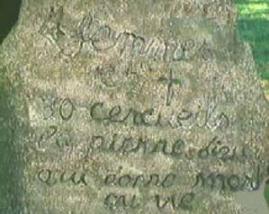 4 femmes
et †
30 cercueils
la pierre dieu
qui donne mort
ou vie